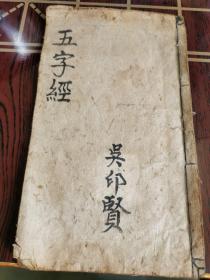 五字經
吳印賢